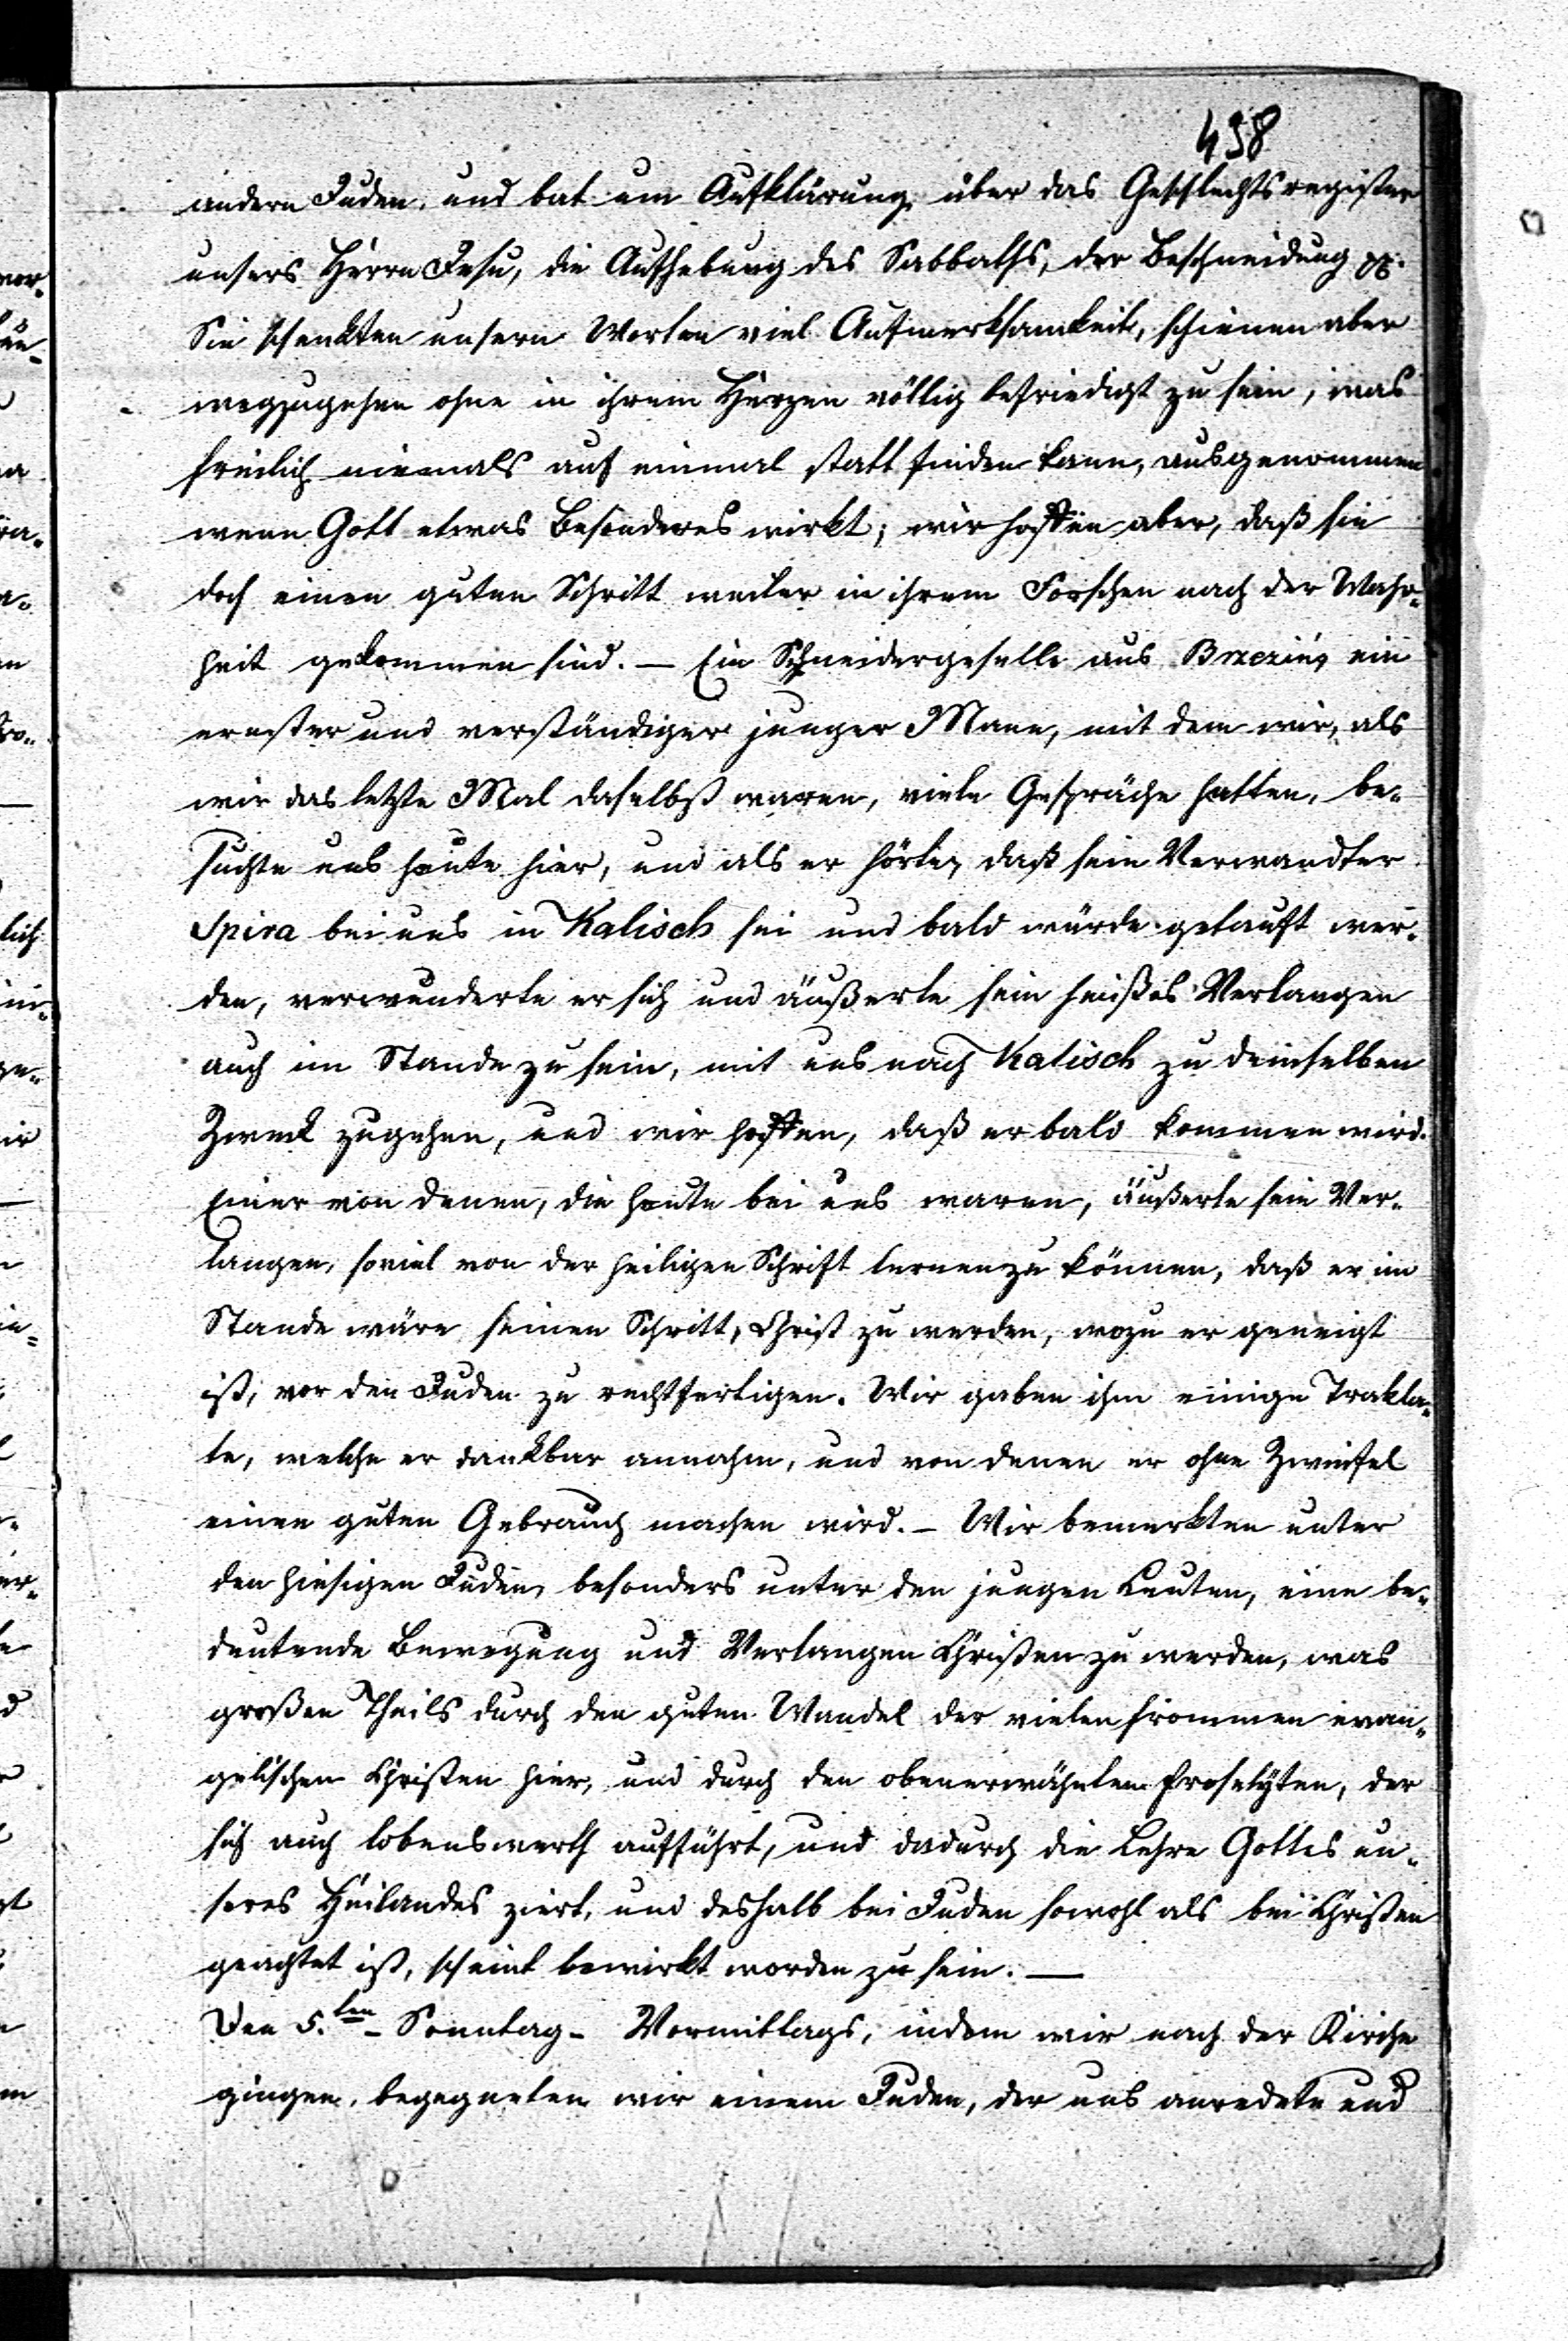 498
andern Juden, und bat um Aufklärung über das Geschlechtsregister
unsers Herrn Jesu, die Aufhebung des Sabbaths, der Beschneidung pp.
Sie schenkten unsern Worten viel Aufmerksamkeit, schienen aber
wegzugehen ohne in ihrem Herzen völlig befriedigt zu sein, was
freilich niemals auf einmal statt finden kann, ausgenommen
wenn Gott etwas Besonderes wirkt; wir hoffen aber, daß sie
doch einen guten Schritt weiter in ihrem Forschen nach der Wahr-
heit gekommen sind. — Ein Schneidergeselle aus Brzezin, ein
ernster und verständiger junger Mann, mit dem wir, als
wir das letzte Mal daselbst waren, viele Gespräche hatten, be-
suchte uns heute hier, und als er hörte, daß sein Verwandter
Spira bei uns in Kalisch sei und bald würde getauft wer-
den, verwunderte er sich und äußerte sein heißes Verlangen
auch im Stande zu sein, mit uns nach Kalisch zu demselben
Zweck zugehen, und wir hoffen, daß er bald kommen wird.
Einer von denen, die heute bei uns waren, äußerte sein Ver-
langen, soviel von der heiligen Schrift lernen zu können, daß er im
Stande wäre seinen Schritt, Christ zu werden, wozu er geneigt
ist, vor den Juden zu rechtfertigen. Wir gaben ihm einige Trakta-
te, welche er dankbar annahm, und von denen er ohne Zweifel
einen guten Gebrauch machen wird. — Wir bemerkten unter
den hiesigen Juden, besonders unter den jungen Leuten, eine be-
deutende Bewegung und Verlangen Christen zu werden, was
großen Theils durch den guten Wandel der vielen frommen evan-
gelischen Christen hier, und durch den obenerwähnten Proselyten, der
sich auch lobenswerth aufführt, und dadurch die Lehre Gottes un-
seres Heilandes ziert, und deshalb bei Juden sowohl als bei Christen
geachtet ist, scheint bewirkt worden zu sein. —
Den 5.ten — Sonntag — Vormittags, indem wir nach der Kirche
gingen, begegneten wir einem Juden, der uns anredete und